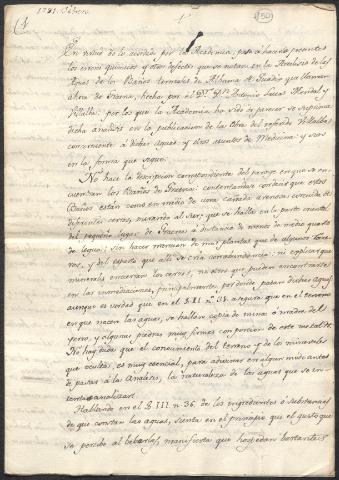 1791. Febrero
1
150
En virtud de lo acordado por la Academia; paso á hacerla presentes
los errores quimicos y otros defectos que se notan en la Analisis de las
Aguas de los Baños termales de Alhama de Guadix que llaman
ahora de Graena, hecha por el Dr. Dn. Antonio Lucas Montal y
Villalba: por los que la Academia ha sido de parecer se suprima
dicha analisis en la publicacion de la obra del referido Villalba
concerniente á dichas aguas y otros asuntos de Medicina: y son
en la forma que sigue.
No hace la descripcion correspondiente del parage en que se en-
cuentran los Baños de Graena: contentandose con decir que estos
Baños están como en medio de una cañada arenosa circuida de
diferentes cerros, mirando al Sur, que se halla en la parte oriental
del pequeño lugar de Graena á distancia de menos de medio quarto
de legua: sin hacer mencion de mas plantas que de algunos Torvis-
cos, y del esparto que alli se cria con abundancia: ni explicar que
minerales encierran los cerros, ni otros que pueden encontrarse
en las inmediaciones, principalmente por donde pasan dichas aguas
aunque es verdad que en el §. II. n.º 34 asegura que en el terreno
en que nacen las aguas, se hallan copia de mina ó madre del
yerro, y algunas piedras muy firmes con porcion de este metal.
No hay duda que el conocimiento del terreno y de los minerales
que oculta, es muy esencial, para adivinar en algun modo antes
de pasar á la Analisis, la naturaleza de las aguas que se in-
tentan analizar.
Hablando en el §. III. n.º 36. de los ingredientes ó substancias
de que constan las aguas, sienta en el principio que el gusto que
se percibe al beberlas, manifiesta que hospedan bastante